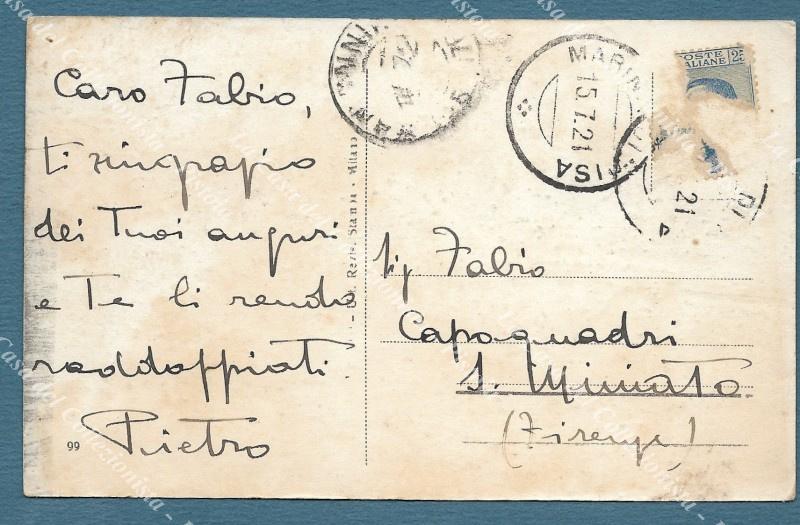 Caro Fabio,
ti ringrazio
dei Tuoi auguri
e Te li rendo
raddoppiati.
Pietro
99
Rezis. Stampa - Milano
POSTE
ITALIANE 25
MARIN
15.7.21
PISA
PI
21
Sig Fabio
Capoquadri
S. Miniato
(Firenze)